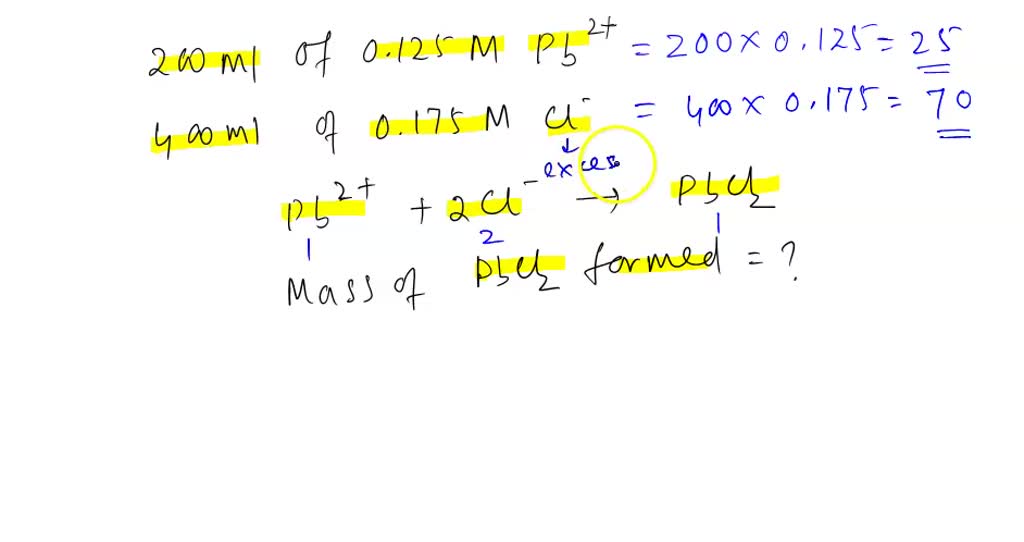 200 ml of 0.125 M Pb²⁺ = 200 × 0.125 = 25
400 ml of 0.175 M Cl⁻ = 400 × 0.175 = 70
↓
excess
Pb²⁺ + 2Cl⁻ → PbCl₂
1 2 1
Mass of PbCl₂ formed = ?